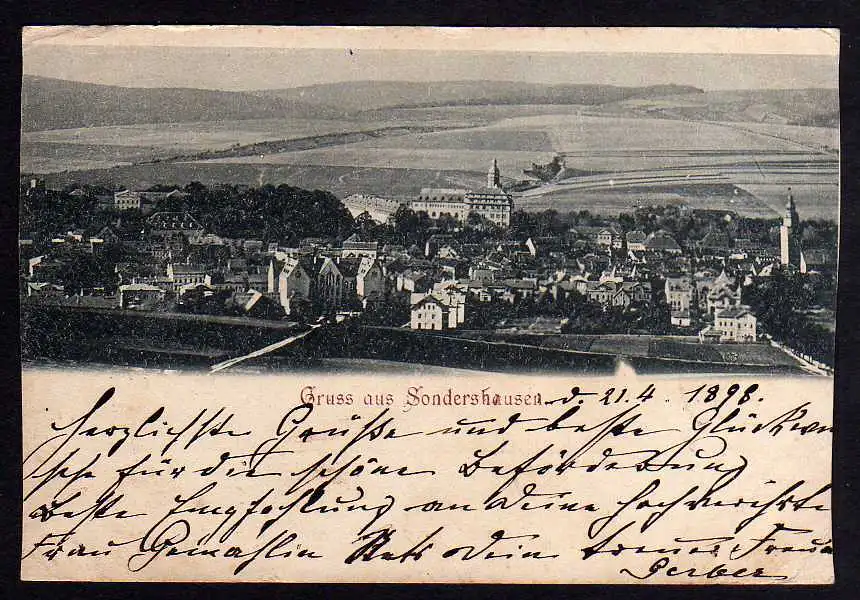 Gruss aus Sondershausen d. 21.4.1898.
Herzlichste Grüße und beste Glückwün
sche für die schöne Beförderung
Beste Empfehlung an Deine hochverehrte
Frau Gemahlin Stets Dein treuer Freund
Gerber